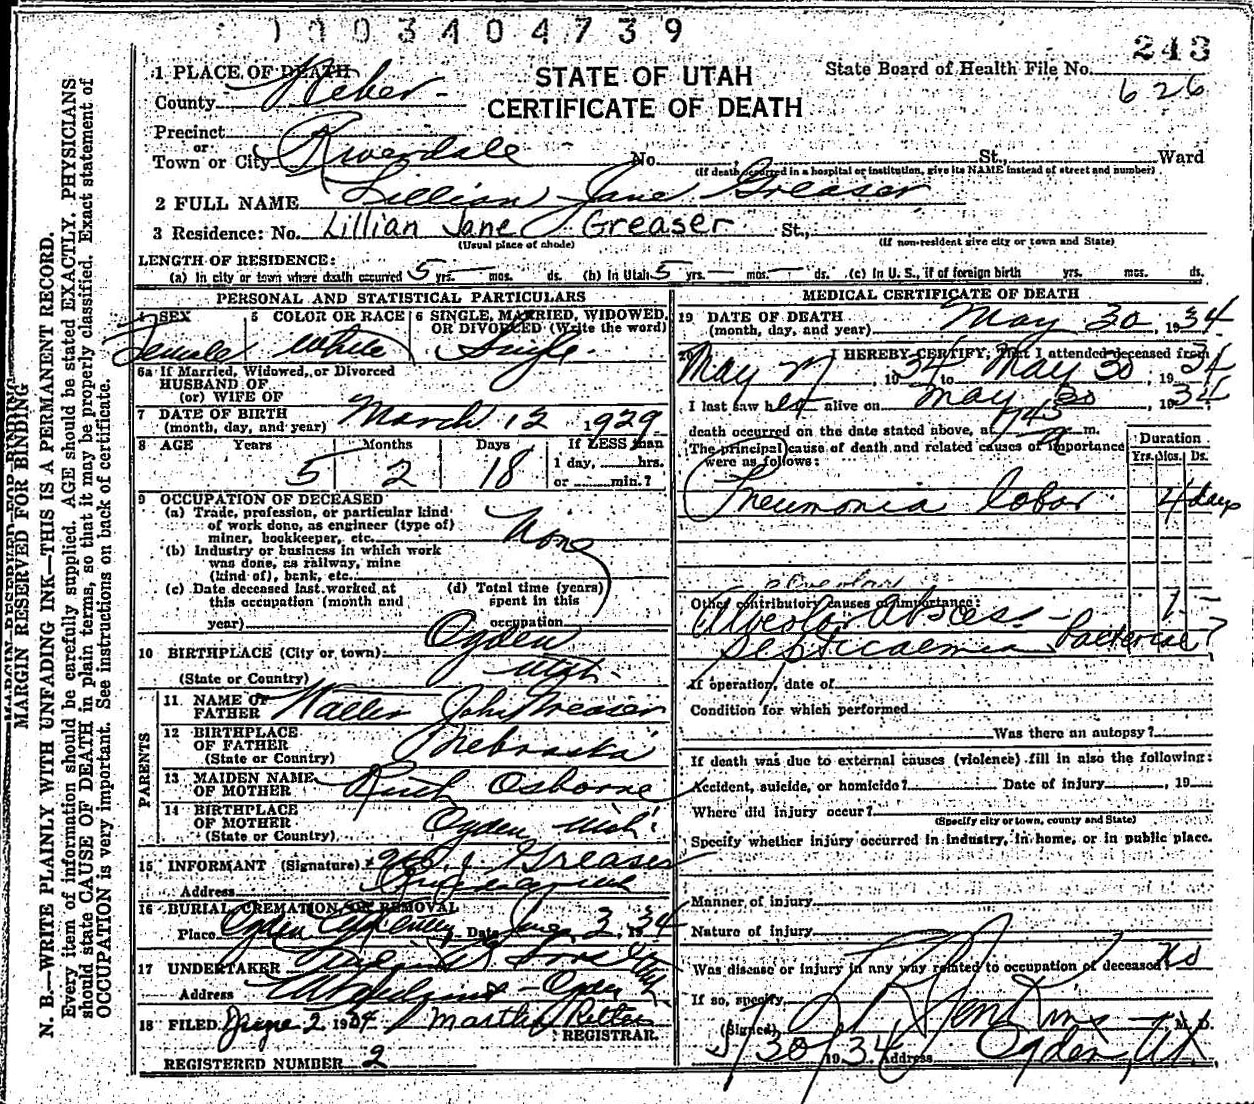 1003404739
243
STATE OF UTAH
CERTIFICATE OF DEATH
State Board of Health File No.
626
1 PLACE OF DEATH
County Weber
Precinct
or
Town or City Riverdale No. St., Ward
(If death occurred in a hospital or institution, give its NAME instead of street and number)
2 FULL NAME Lillian Jane Greaser
3 Residence: No. Lillian Jane Greaser St.,
(Usual place of abode) (If non-resident give city or town and State)
LENGTH OF RESIDENCE:
(a) In city or town where death occurred 5 yrs. — mos. ds. (b) In Utah 5 yrs. — mos. — ds. (c) In U. S., if of foreign birth yrs. mos. ds.
PERSONAL AND STATISTICAL PARTICULARS
4 SEX Female
5 COLOR OR RACE White
6 SINGLE, MARRIED, WIDOWED, OR DIVORCED (Write the word) Single
6a If Married, Widowed, or Divorced
HUSBAND OF
(or) WIFE OF
7 DATE OF BIRTH
(month, day, and year) March 12 1929
8 AGE Years 5 Months 2 Days 18 If LESS than
1 day, hrs.
or min.?
9 OCCUPATION OF DECEASED
(a) Trade, profession, or particular kind
of work done, as engineer (type of)
miner, bookkeeper, etc. None
(b) Industry or business in which work
was done, as railway, mine
(kind of), bank, etc.
(c) Date deceased last worked at
this occupation (month and
year)
(d) Total time (years)
spent in this
occupation
10 BIRTHPLACE (City or town) Ogden
(State or Country) Utah
PARENTS
11 NAME OF
FATHER Walter John Greaser
12 BIRTHPLACE
OF FATHER
(State or Country) Nebraska
13 MAIDEN NAME
OF MOTHER Ruth Osborne
14 BIRTHPLACE
OF MOTHER
(State or Country) Ogden Utah
15 INFORMANT (Signature) Greaser
Address
16 BURIAL, CREMATION, OR REMOVAL
Place Ogden City Date June 3, 1934
17 UNDERTAKER
Address Ogden
18 FILED June 2 1934 Martha Ritter
REGISTRAR.
REGISTERED NUMBER 2
MEDICAL CERTIFICATE OF DEATH
19 DATE OF DEATH
(month, day, and year) May 30, 1934
20 I HEREBY CERTIFY, That I attended deceased from
May 27, 1934 to May 30, 1934
I last saw her alive on May 30, 1934
death occurred on the date stated above, at 745 a m.
The principal cause of death and related causes of importance
were as follows:
Duration
Yrs. Mos. Ds.
Pneumonia lobar 4 days
alveolar
Other contributory causes of importance:
Alveolar Abscess —
Septicaemia bacterial ?
If operation, date of
Condition for which performed
Was there an autopsy?
If death was due to external causes (violence) fill in also the following:
Accident, suicide, or homicide? Date of injury , 19
Where did injury occur?
(Specify city or town, county and State)
Specify whether injury occurred in industry, in home, or in public place.
Manner of injury
Nature of injury
Was disease or injury in any way related to occupation of deceased? No
If so, specify
(Signed) M. D.
5/30 1934 Address Ogden, Ut
MARGIN RESERVED FOR BINDING
N. B.—WRITE PLAINLY WITH UNFADING INK—THIS IS A PERMANENT RECORD.
Every item of information should be carefully supplied. AGE should be stated EXACTLY. PHYSICIANS
should state CAUSE OF DEATH in plain terms, so that it may be properly classified. Exact statement of
OCCUPATION is very important. See instructions on back of certificate.